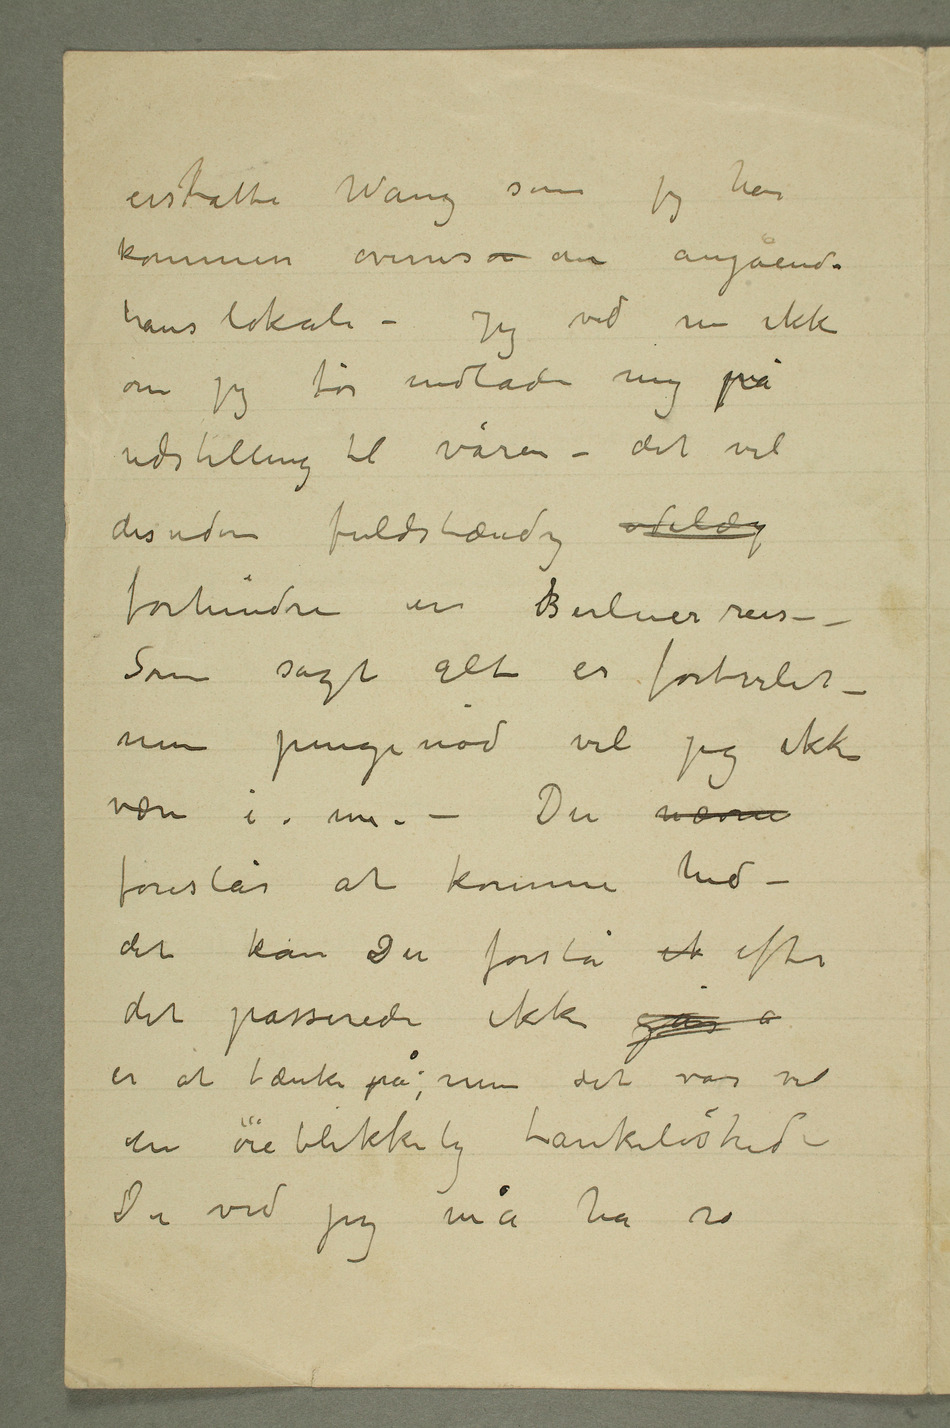 erstatte Wang som jeg har
kommen overens om angående
hans lokale – Jeg ved nu ikke
om jeg tør indlade mig på
udstilling til våren – det vil
desuden fuldstændig ødelæg
forhindre en Berlinerreis –
Som sagt alt er fortvilet –
men pengenød vil jeg ikke
være i. nu. – Du nævne
foreslår at komme hid –
det kan Du forstå et efter
det passerede ikke går a
er at tænke på; men det var vel
en øieblikkelig tankeløshed –
Du ved jeg må ha ro